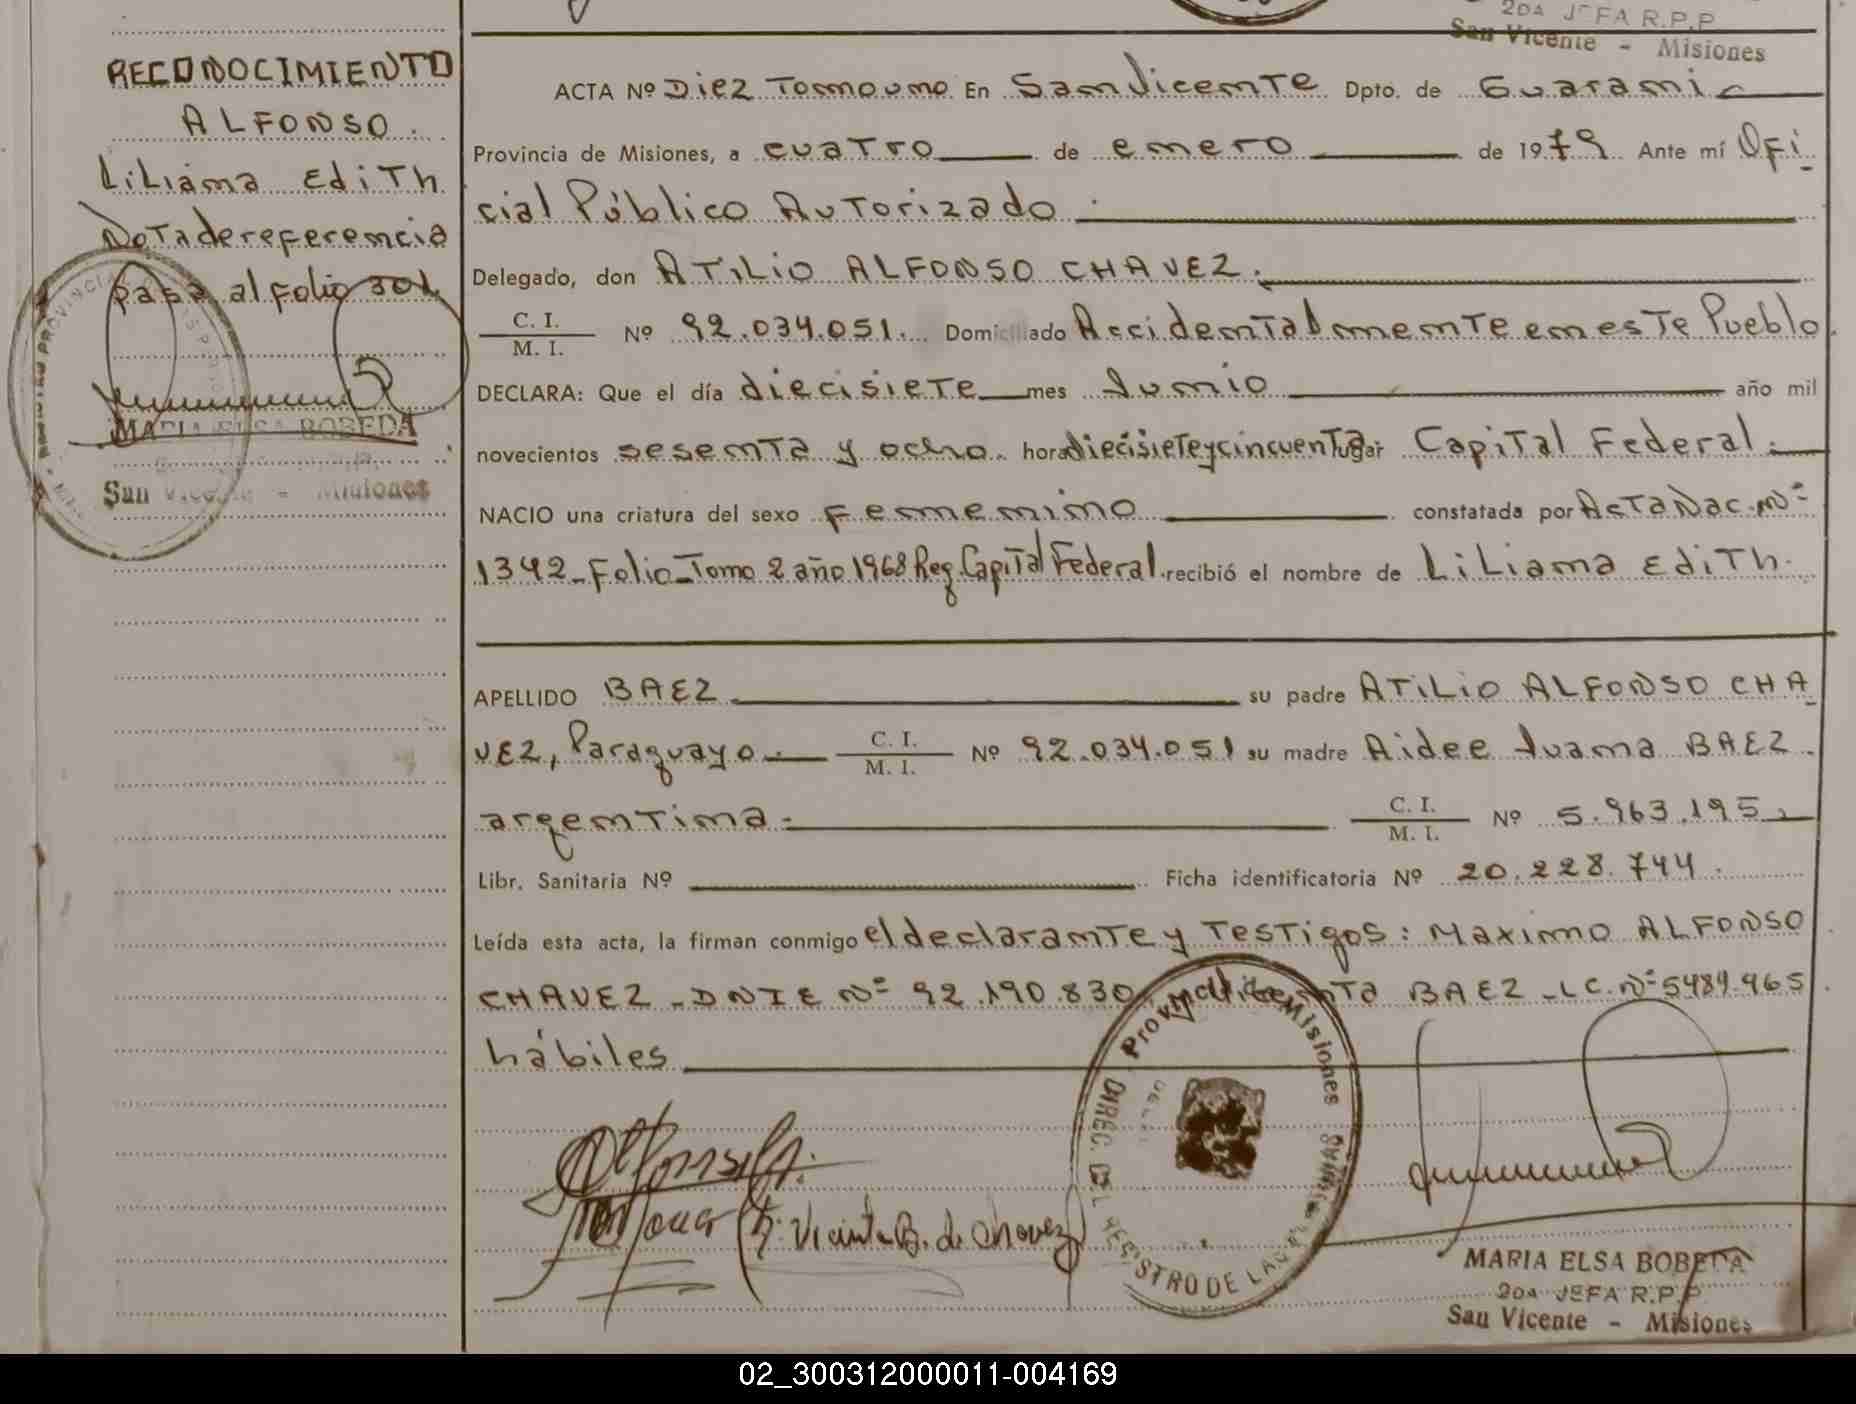 2DA JEFA R.P.P
San Vicente - Misiones
RECONOCIMIENTO
ALFONSO
Liliana Edith
Nota de referencia
pasa al folio 301
MARIA ELSA BOBEDA
San Vicente - Misiones
ACTA Nº Diez Tomo uno En San Vicente Dpto. de Guaraní
Provincia de Misiones, a cuatro de enero de 1979 Ante mí Ofi
cial Público Autorizado.
Delegado, don ATILIO ALFONSO CHAVEZ.
C. I.
M. I. Nº 92.034.051. Domiciliado Accidentalmente en este Pueblo.
DECLARA: Que el día diecisiete mes Junio año mil
novecientos sesenta y ocho. hora diecisiete y cincuenta lugar Capital Federal.
NACIO una criatura del sexo femenino constatada por Acta Nac. Nº
1342 - Folio - Tomo 2 año 1968 Reg. Capital Federal. recibió el nombre de Liliana Edith.
APELLIDO BAEZ su padre ATILIO ALFONSO CHA
VEZ, Paraguayo. C. I.
M. I. Nº 92.034.051 su madre Aidee Juana BAEZ.
argentina. C. I.
M. I. Nº 5.963.195
Libr. Sanitaria Nº Ficha identificatoria Nº 20.228.744.
Leída esta acta, la firman conmigo el declarante y Testigos: Maximo ALFONSO
CHAVEZ - DNIE Nº 92.190.830 BAEZ - LC. Nº 5489.965
hábiles
Vicenta B. de Chavez
Provincia de Misiones
DIREC. DEL REGISTRO DE LAS
MARIA ELSA BOBEDA
2DA JEFA R.P.P.
San Vicente - Misiones
02_300312000011-004169